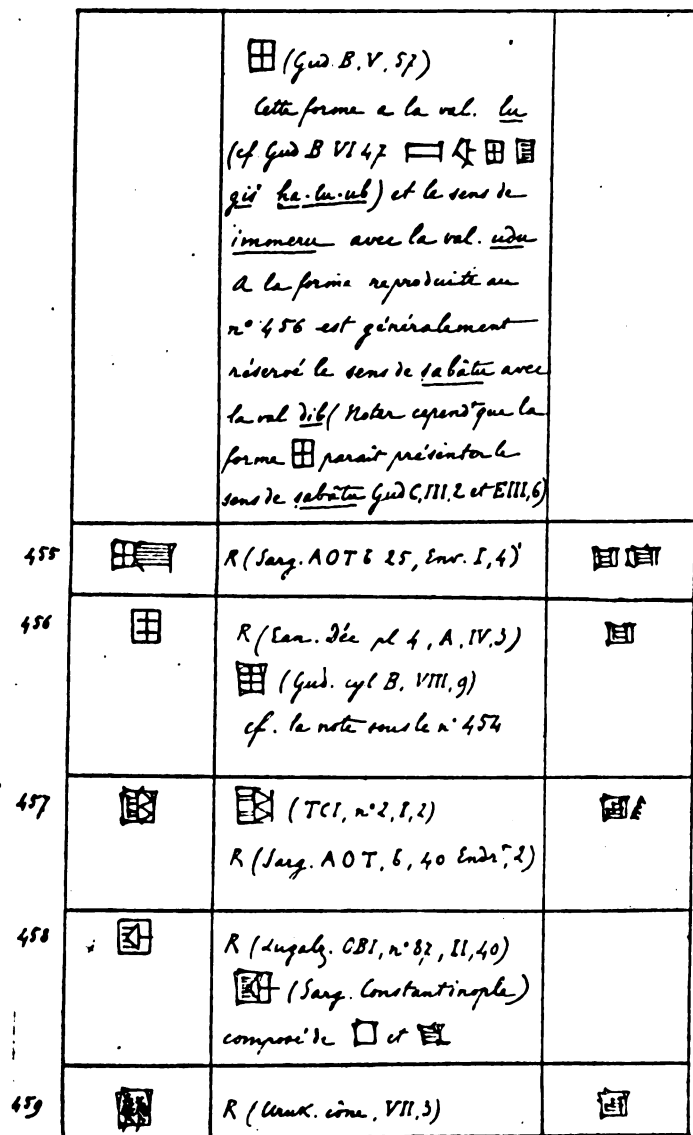 (Gud. B. V. 57)
Cette forme a la val. lu
(cf Gud B VI 47
giš ha-lu-ub) et le sens de
immeru avec la val. udu
A la forme reproduite au
n° 456 est généralement
réservé le sens de sabâtu avec
la val dib (Noter cependt que la
forme paraît présenter le
sens de sabâtu Gud C, III, 2 et E III, 6)
455 R (Sarg. AOTb 25, Env. I, 4)
456 R (Ean. Déc pl 4, A, IV, 3)
(Gud. cyl B, VIII, 9)
cf. la note sous le n° 454
457 (TCI, n° 2, I, 2)
R (Sarg. AOT, b, 40 Endrt, 2)
458 R (Lugalz. CBI, n° 87, II, 40)
(Sarg. Constantinople)
composé de et
459 R (Uruk. cône, VII, 3)